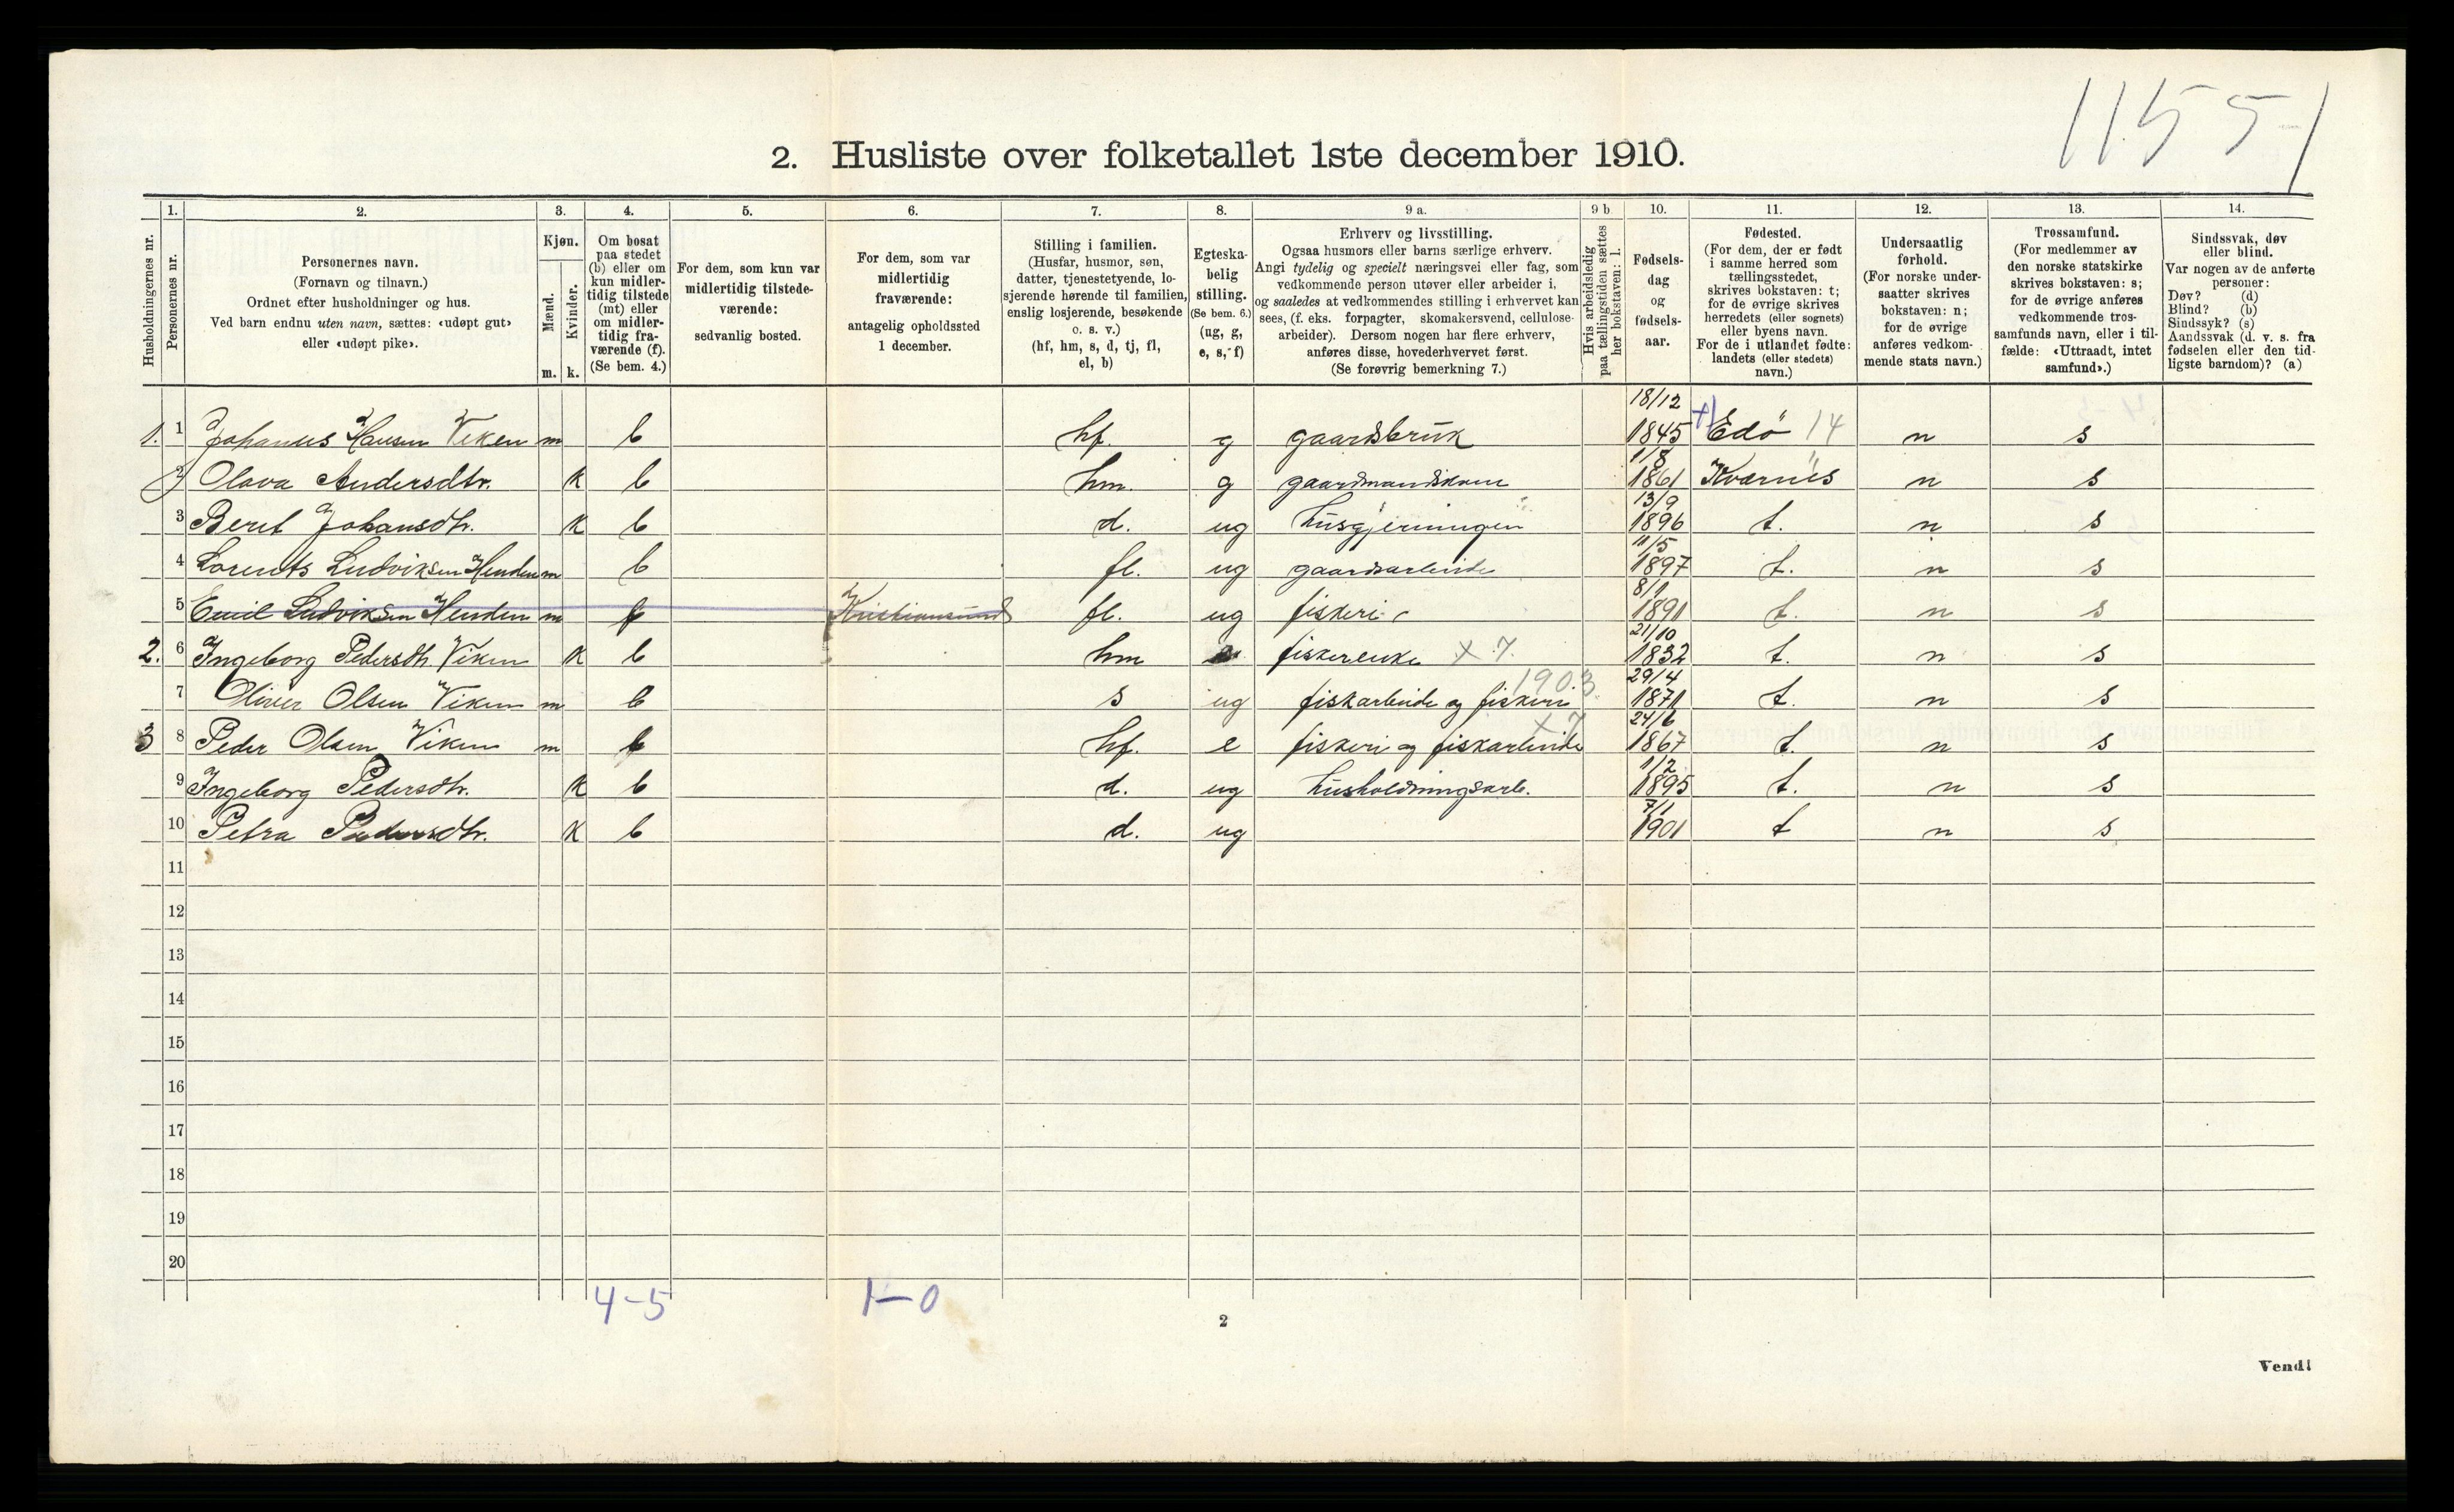 11551
2. Husliste over folketallet 1ste december 1910.
Husholdningernes nr.
1. Personernes nr.
2. Personernes navn.
(Fornavn og tilnavn.)
Ordnet efter husholdninger og hus.
Ved barn endnu uten navn, sættes: «udøpt gut»
eller «udøpt pike».
3. Kjøn.
Mænd. m.
Kvinder. k.
4. Om bosat
paa stedet
(b) eller om
kun midler-
tidig tilstede
(mt) eller
om midler-
tidig fra-
værende (f).
(Se bem. 4.)
5. For dem, som kun var
midlertidig tilstede-
værende:
sedvanlig bosted.
6. For dem, som var
midlertidig
fraværende:
antagelig opholdssted
1 december.
7. Stilling i familien.
(Husfar, husmor, søn,
datter, tjenestetyende, lo-
sjerende hørende til familien,
enslig losjerende, besøkende
o. s. v.)
(hf, hm, s, d, tj, fl,
el, b)
8. Egteska-
belig
stilling.
(Se bem. 6.)
(ug, g,
e, s, f)
9 a. Erhverv og livsstilling.
Ogsaa husmors eller barns særlige erhverv.
Angi tydelig og specielt næringsvei eller fag, som
vedkommende person utøver eller arbeider i,
og saaledes at vedkommendes stilling i erhvervet kan
sees, (f. eks. forpagter, skomakersvend, cellulose-
arbeider). Dersom nogen har flere erhverv,
anføres disse, hovederhvervet først.
(Se forøvrig bemerkning 7.)
9 b Hvis arbeidsledig
paa tællingstiden sættes
her bokstaven: l.
10. Fødsels-
dag
og
fødsels-
aar.
11. Fødested.
(For dem, der er født
i samme herred som
tællingsstedet,
skrives bokstaven: t;
for de øvrige skrives
herredets (eller sognets)
eller byens navn.
For de i utlandet fødte:
landets (eller stedets)
navn.)
12. Undersaatlig
forhold.
(For norske under-
saatter skrives
bokstaven: n;
for de øvrige
anføres vedkom-
mende stats navn.)
13. Trossamfund.
(For medlemmer av
den norske statskirke
skrives bokstaven: s;
for de øvrige anføres
vedkommende tros-
samfunds navn, eller i til-
fælde: «Uttraadt, intet
samfund».)
14. Sindssvak, døv
eller blind.
Var nogen av de anførte
personer:
Døv? (d)
Blind? (b)
Sindssyk? (s)
Aandssvak (d. v. s. fra
fødselen eller den tid-
ligste barndom)? (a)
1. 1 Johannes Hansen Viken m b hf. g gaardsbruk 18/12 1845 Edö 14 n s
2 Olava Andersdtr. k b hm. g gaardmandskone 1/8 1861 Kværnes n s
3 Berit Johansdtr. k b d. ug husgjerningen 13/9 1896 t. n s
4 Lorents Ludviksen Henden m b fl. ug gaardsarbeide 11/5 1897 t. n s
5 Emil Ludviksen Henden m f Kristiansund fl. ug fiskeri 8/1 1891 t. n s
2. 6 Ingeborg Pedersdtr Viken k b hm fiskerenke x 7. 21/10 1832 t. n s
7 Oliver Olsen Viken m b s ug fiskarbeide og fiskeri 1903 29/4 1871 t. n s
3 8 Peder Olsen Viken m b hf. e fiskeri og fiskarbeide x 7 24/6 1867 t. n s
9 Ingeborg Pedersdtr. k b d. ug husholdningsarb. 1/2 1895 t. n s
10 Petra Pedersdtr. k b d. ug 7/1 1901 t n s
11
12
13
14
15
16
17
18
19
20
4-5 1-0
2
Vend!